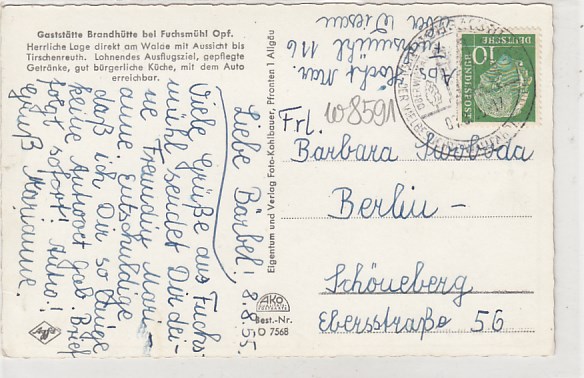 Gaststätte Brandhütte bei Fuchsmühl Opf.
Herrliche Lage direkt am Walde mit Aussicht bis
Tirschenreuth. Lohnendes Ausflugsziel, gepflegte
Getränke, gut bürgerliche Küche, mit dem Auto
erreichbar.
Liebe Bärbel! 8.8.55.
Viele Grüße aus Fuchs-
mühl sendet Dir dei-
ne Freundin Mari-
anne. Entschuldige
daß ich Dir so lange
keine Antwort gab. Brief
folgt sofort! Antw.!
Gruß Marianne.
Eigentum und Verlag Foto-Kohlbauer, Pfronten i Allgäu
AKO
Best.-Nr.
O 7568
Abs.
Fuchsmühl 116
über Wiesau
w8591
DEUTSCHE
BUNDESPOST
10
Frl.
Barbara Swoboda
Berlin-
Schöneberg
Ebersstraße 56
Agfa